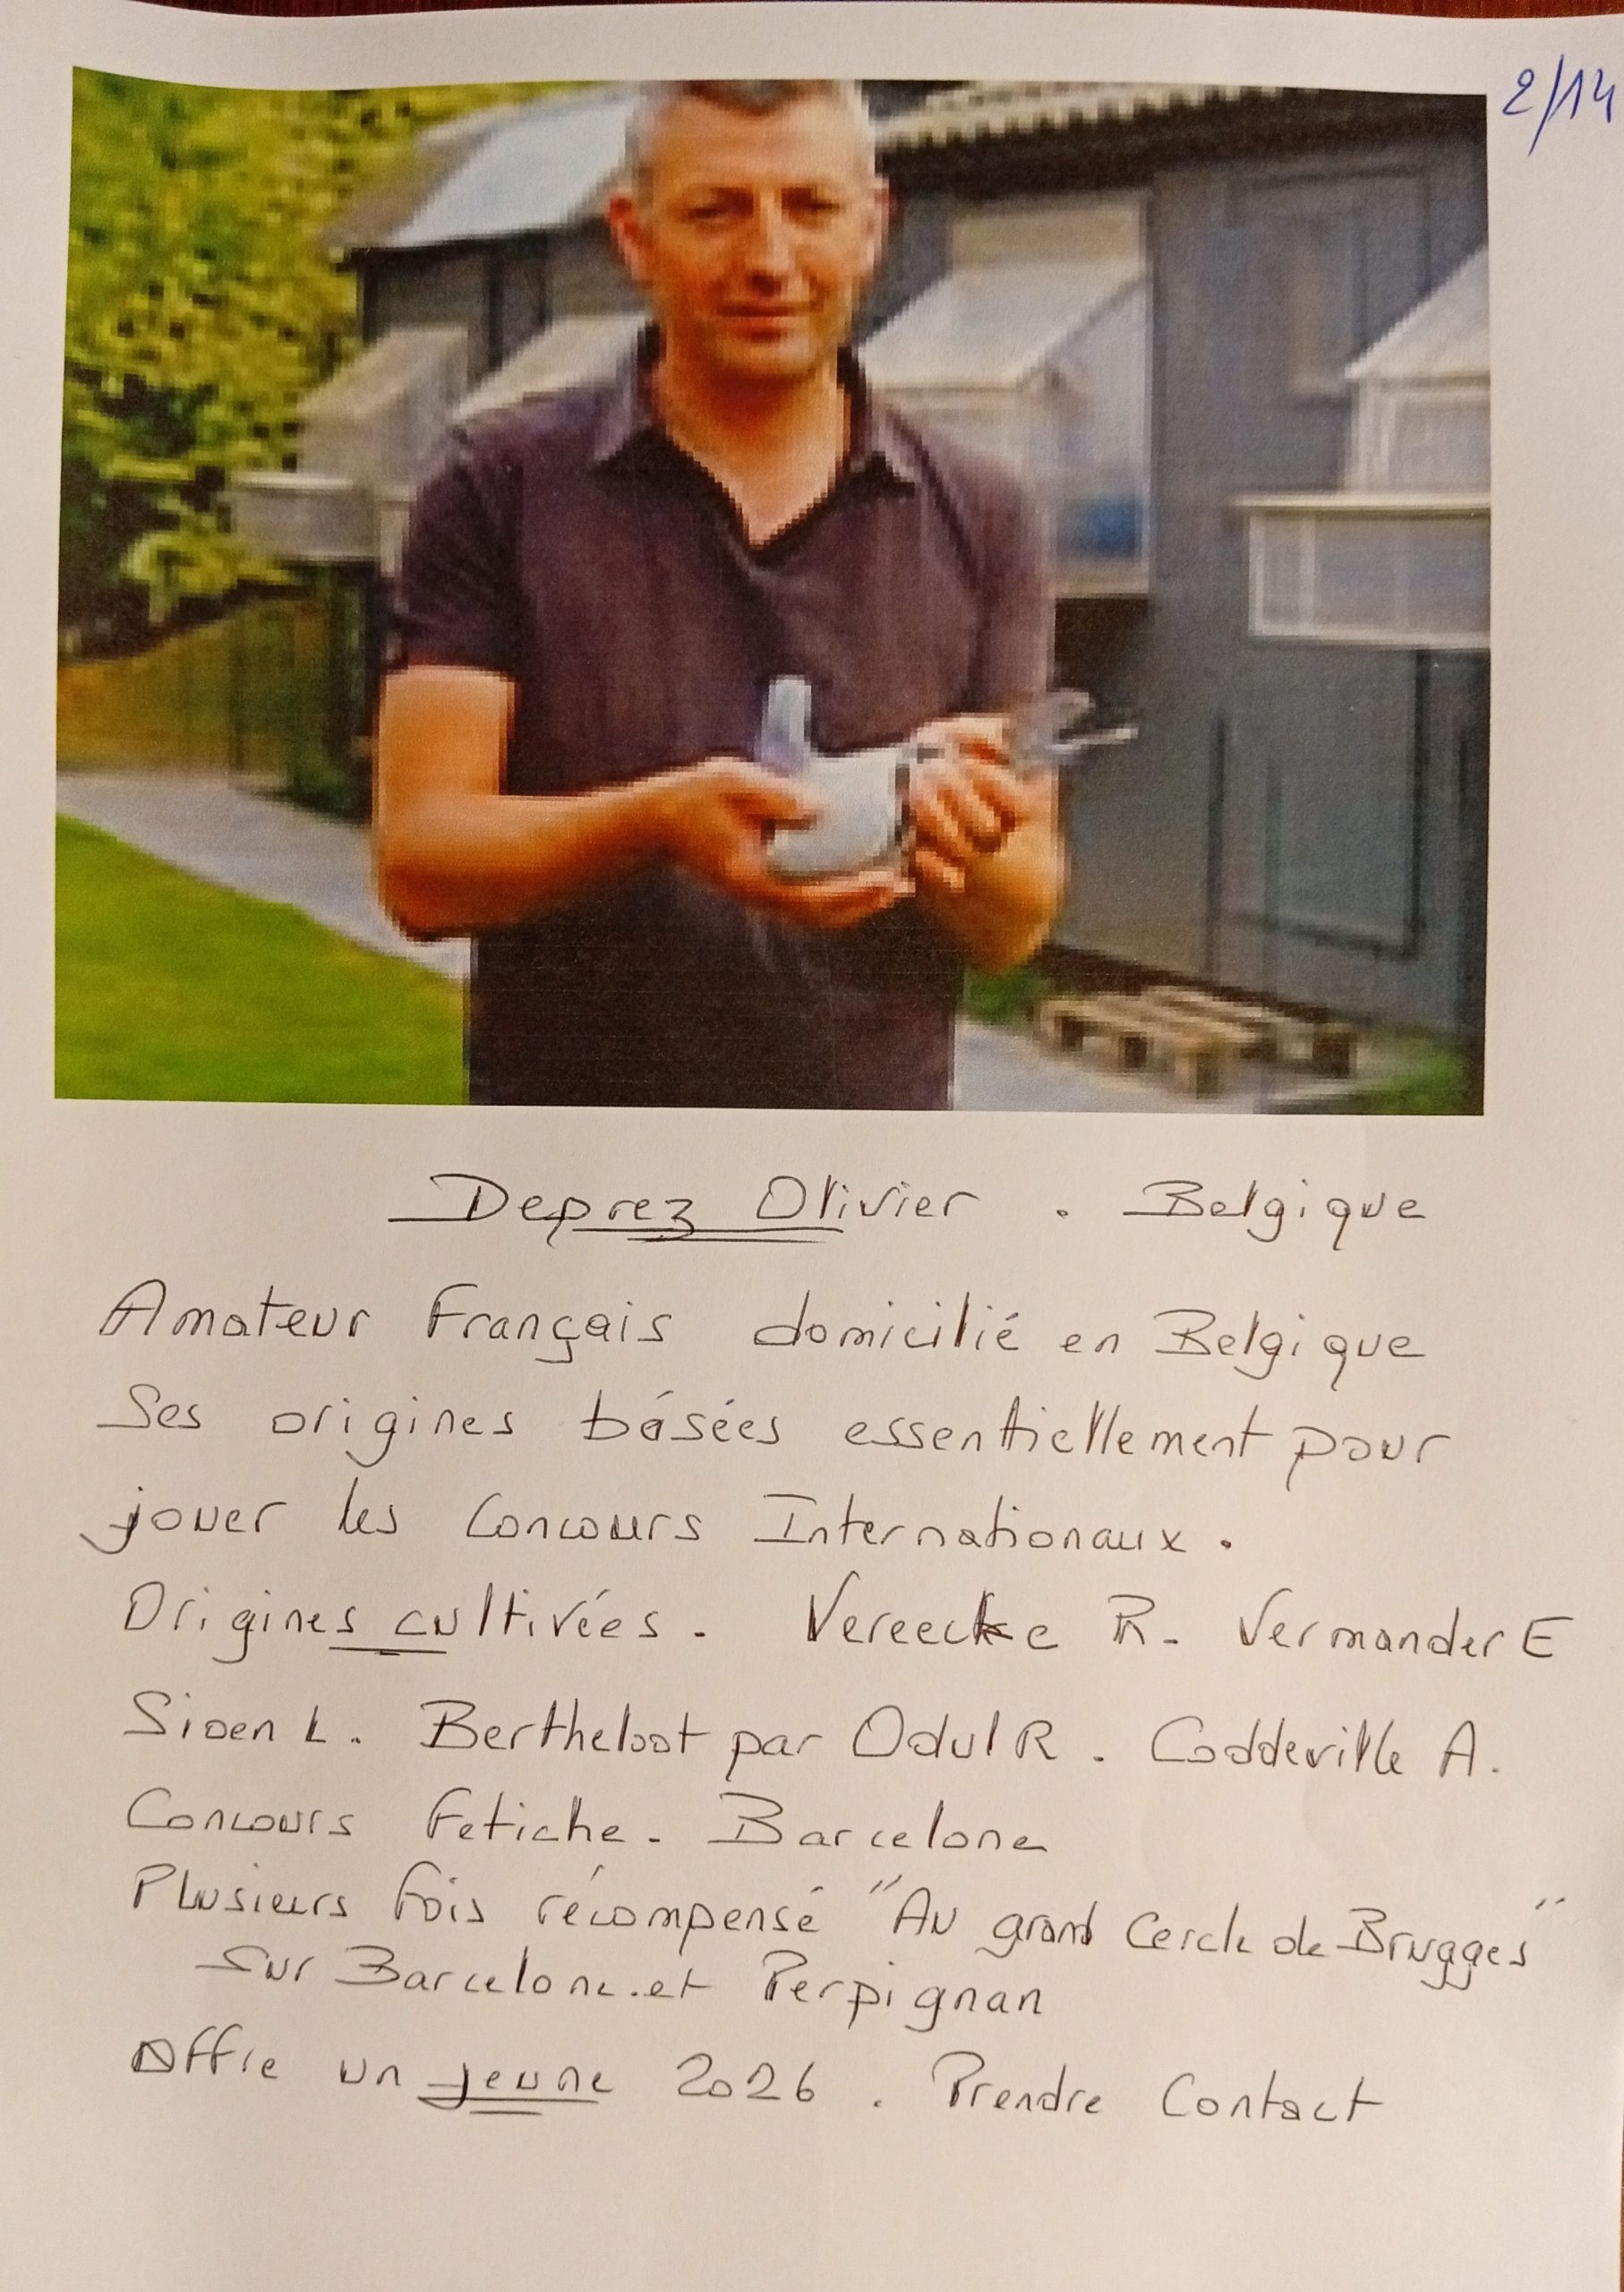 2/14
Deprez Olivier . Belgique
Amateur Français domicilié en Belgique
Ses origines básées essentiellement pour
jouer les Concours Internationaux.
Origines cultivées. Vereecke R. Vermander E
Sioen L. Bertheloot par Odul R. Coddeville A.
Concours Fetiche. Barcelone
Plusieurs fois récompensé "Au grand Cercle de Brugges"
Sur Barcelone et Perpignan
Offre un jeune 2026. Prendre Contact